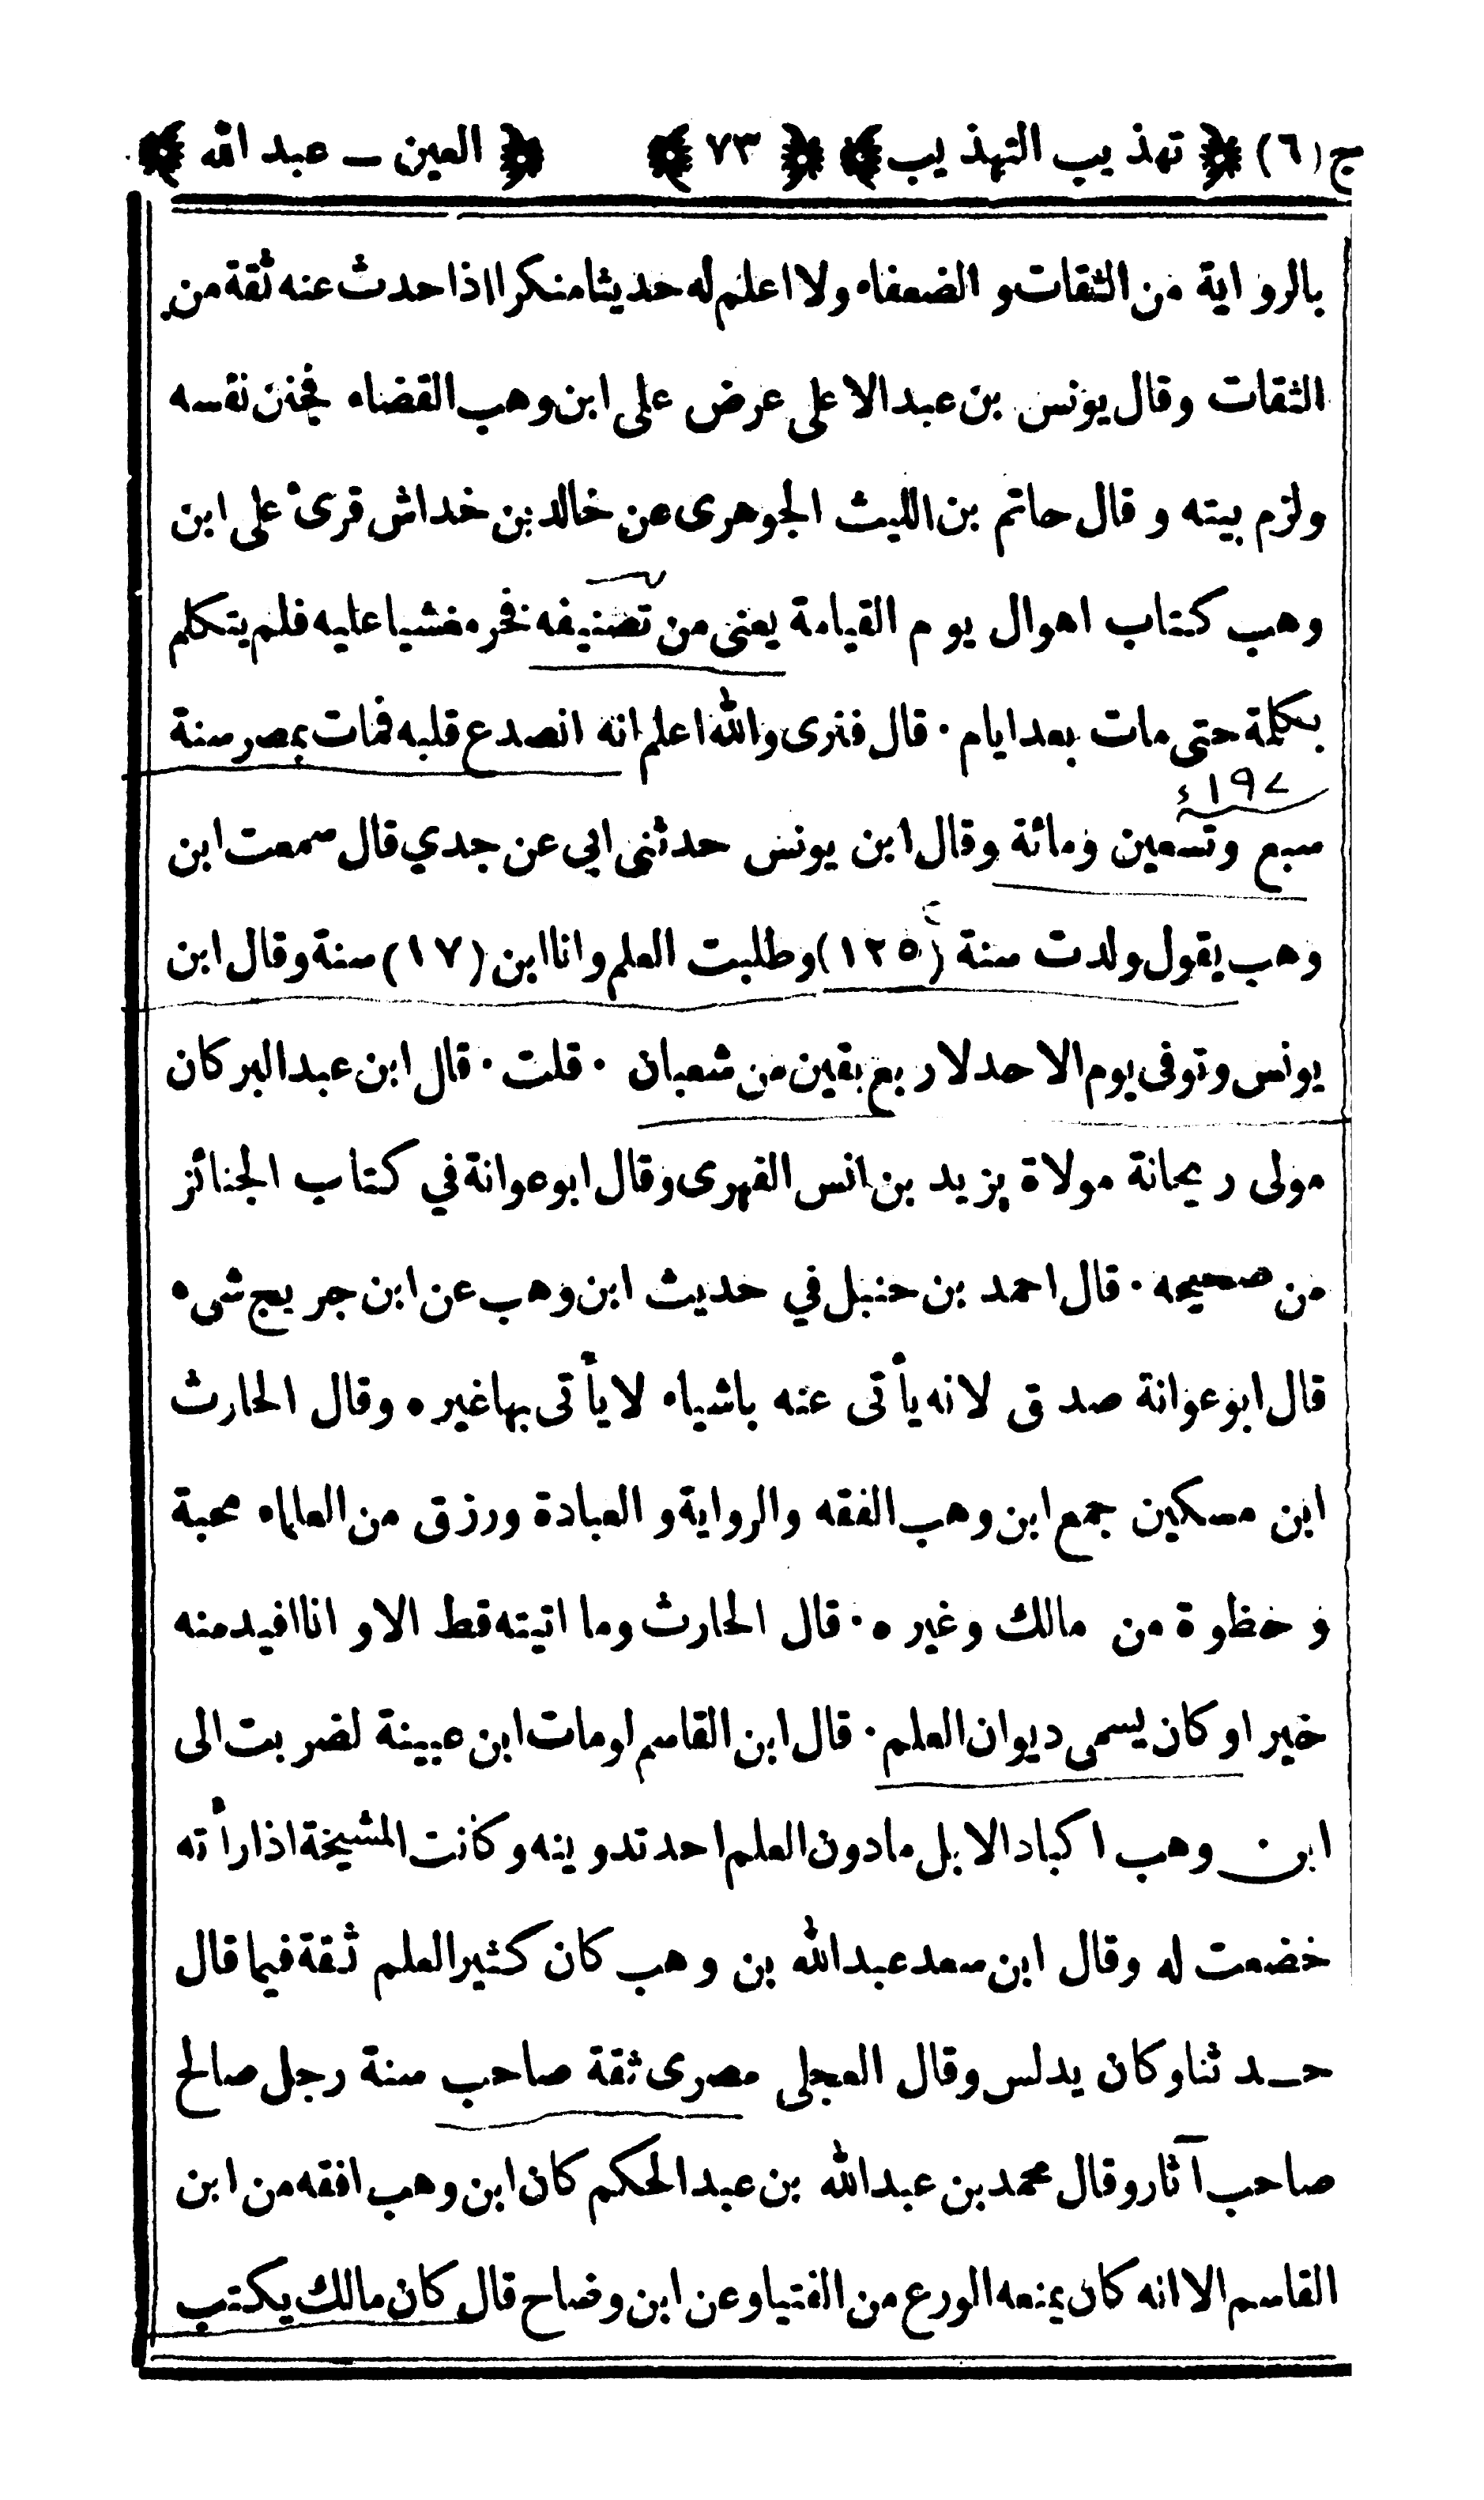 ج (٦) ﴿ تهذيب التهذيب ﴾ ﴿ ٧٣ ﴾ ﴿ العين ـ عبد الله ﴾
بالرواية من الثقات و الضعفاء ولا اعلم له حديثا منكرا اذا حدث عنه ثقة من
الثقات وقال يونس بن عبد الاعلى عرض على ابن وهب القضاء فجنن نفسه
ولزم بيته و قال حاتم بن الليث الجوهرى عن خالد بن خداش قرئ على ابن
وهب كتاب اهوال يوم القيامة يعنى من تصنيفه فخر مغشيا عليه فلم يتكلم
بكلمة حتى مات بعد ايام . قال فنرى والله اعلم انه انصدع قلبه فمات بمصر سنة
١٩٧ء
سبع وتسعين ومائة وقال ابن يونس حدثنى ابي عن جدي قال سمعت ابن
وهب يقول ولدت سنة (١٢٥) وطلبت العلم وانا ابن (١٧) سنة وقال ابن
يونس وتوفى يوم الاحد لاربع بقين من شعبان . قلت . قال ابن عبد البر كان
مولى ريحانة مولاة يزيد بن انس الفهرى وقال ابو عوانة في كتاب الجنائز
من صحيحه . قال احمد بن حنبل في حديث ابن وهب عن ابن جريج شىء
قال ابو عوانة صدق لانه يأتى عنه باشياء لا يأتى بها غيره وقال الحارث
ابن مسكين جمع ابن وهب الفقه والرواية و العبادة ورزق من العلماء محبة
و حظوة من مالك وغيره . قال الحارث وما اتيته قط الا و انا افيد منه
خيرا و كان يسمى ديوان العلم . قال ابن القاسم لو مات ابن عيينة لضربت الى
ابن وهب اكباد الابل ما دون العلم احد تدوينه و كانت المشيخة اذا رأته
خضعت له وقال ابن سعد عبد الله بن وهب كان كثير العلم ثقة فيما قال
حـد ثنا وكان يدلس وقال العجلى مصرى ثقة صاحب سنة رجل صالح
صاحب آثار وقال محمد بن عبد الله بن عبد الحكم كان ابن وهب افقه من ابن
القاسم الا انه كان يمنعه الورع من الفتيا وعن ابن وضاح قال كان مالك يكتب